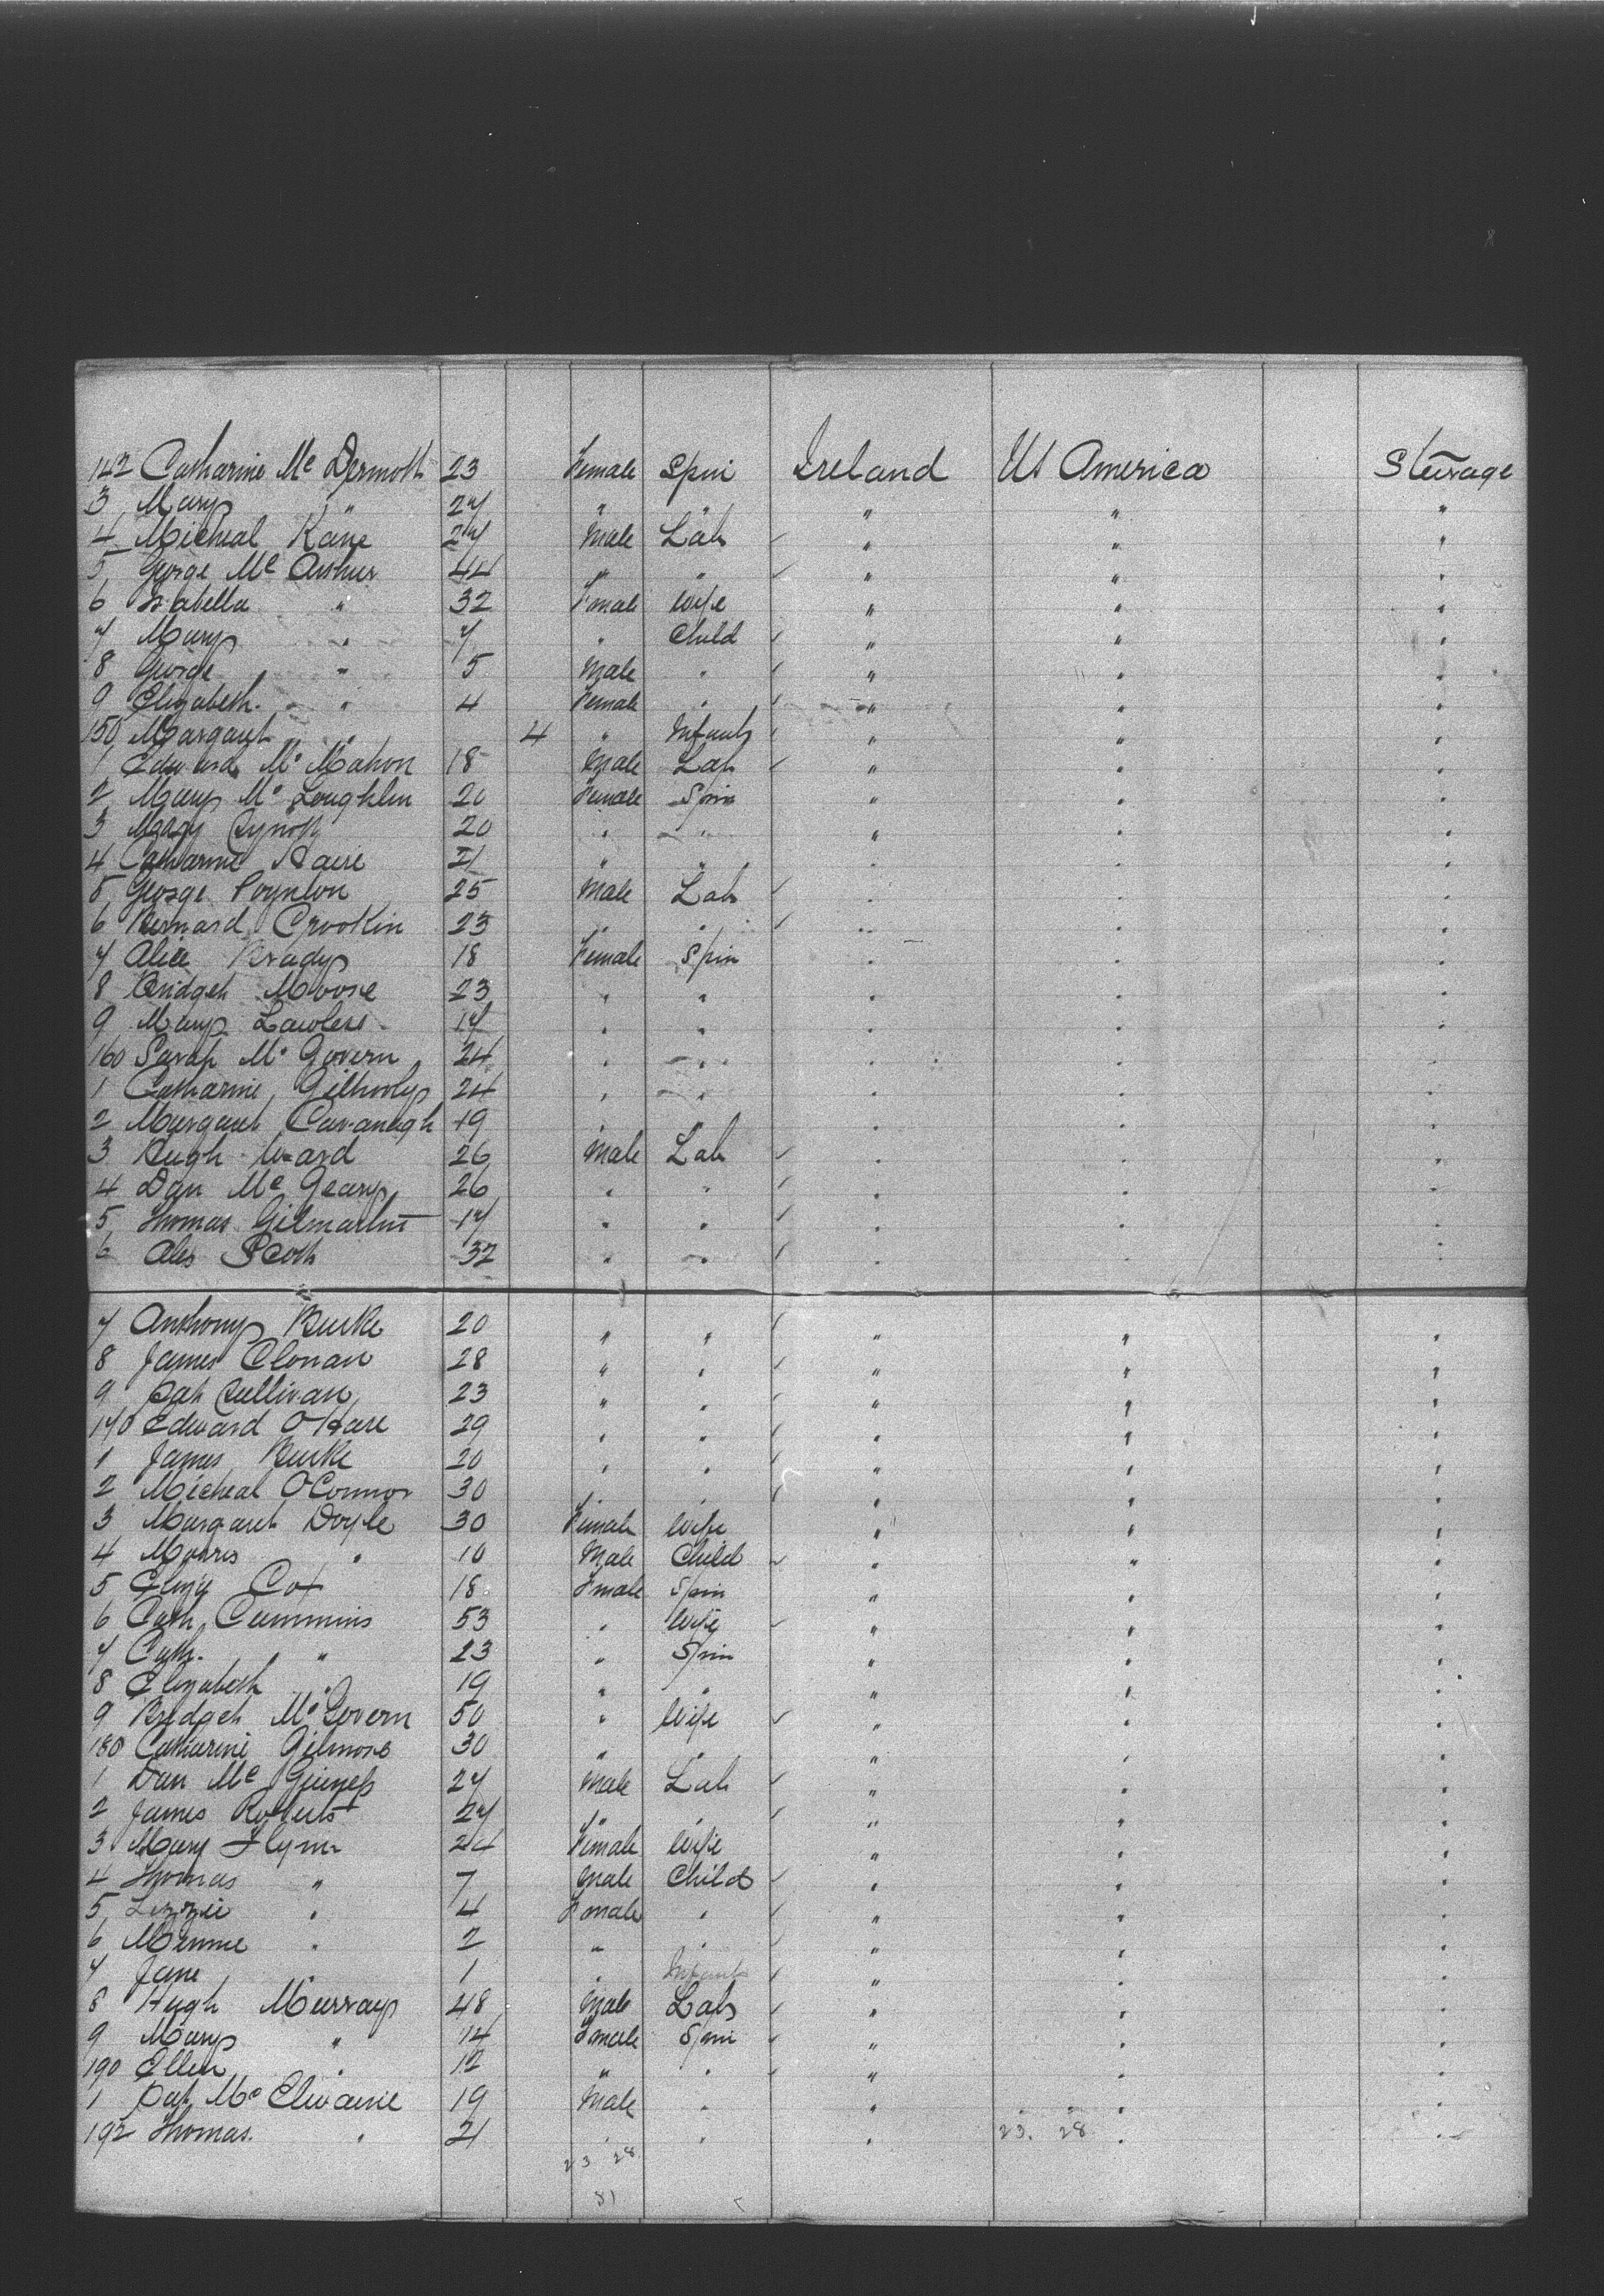 142 Catharine Mc Dermott 23 Female Spin Ireland US America Steerage
3 Mary " 27 " " " "
4 Micheal Kane 27 Male Lab " " "
5 George Mc Arthur 44 " " " " "
6 Isabella " 32 Female Wife " " "
7 Mary " 7 " Child " " "
8 George " 5 Male " " " "
9 Elizabeth " 4 Female " " " "
150 Margaret " 4 " Infant " " "
1 Edward Mc Mahon 18 Male Lab " " "
2 Mary Mc Loughlin 20 Female Spin " " "
3 Mary 20 " " " " "
4 Catharine 21 " " " " "
5 George Poynton 25 Male Lab " " "
6 Bernard Crookin 23 " " " " "
7 Alice Brady 18 Female Spin " " "
8 Bridget Moore 23 " " " " "
9 Mary Lawless 17 " " " " "
160 Sarah Mc Govern 24 " " " " "
1 Catharine Gilhooly 24 " " " " "
2 Margaret Cavanagh 19 " " " " "
3 Hugh Ward 26 Male Lab " " "
4 Dan Mc Geary 26 " " " " "
5 Thomas Gilmartin 17 " " " " "
6 Alex Scott 32 " " " " "
7 Anthony Burke 20 " " " " "
8 James Clonan 28 " " " " "
9 Pat Sullivan 23 " " " " "
170 Edward O'Hare 29 " " " " "
1 James Burke 20 " " " " "
2 Micheal O'Connor 30 " " " " "
3 Margaret Doyle 30 Female Wife " " "
4 Morris " 10 Male Child " " "
5 Eliza Cox 18 Female Spin " " "
6 Cath Cummins 53 " Wife " " "
7 Cath. " 23 " Spin " " "
8 Elizabeth " 19 " " " " "
9 Bridget Mc Govern 50 " Wife " " "
180 Catharine Gilmore 30 " " " " "
1 Dan Mc Guiness 27 Male Lab " " "
2 James Roberts 27 " " " " "
3 Mary Flynn 24 Female Wife " " "
4 Thomas " 7 Male Child " " "
5 Lizzie " 4 Female " " " "
6 Minnie " 2 " " " " "
7 Jane " 1 " Infant " " "
8 Hugh Murray 48 Male Lab " " "
9 Mary " 14 Female Spin " " "
190 Ellen " 12 " " " " "
1 Pat Mc Elwaine 19 Male " " " "
192 Thomas " 21 " " " 23. 28 " "
23 28
51